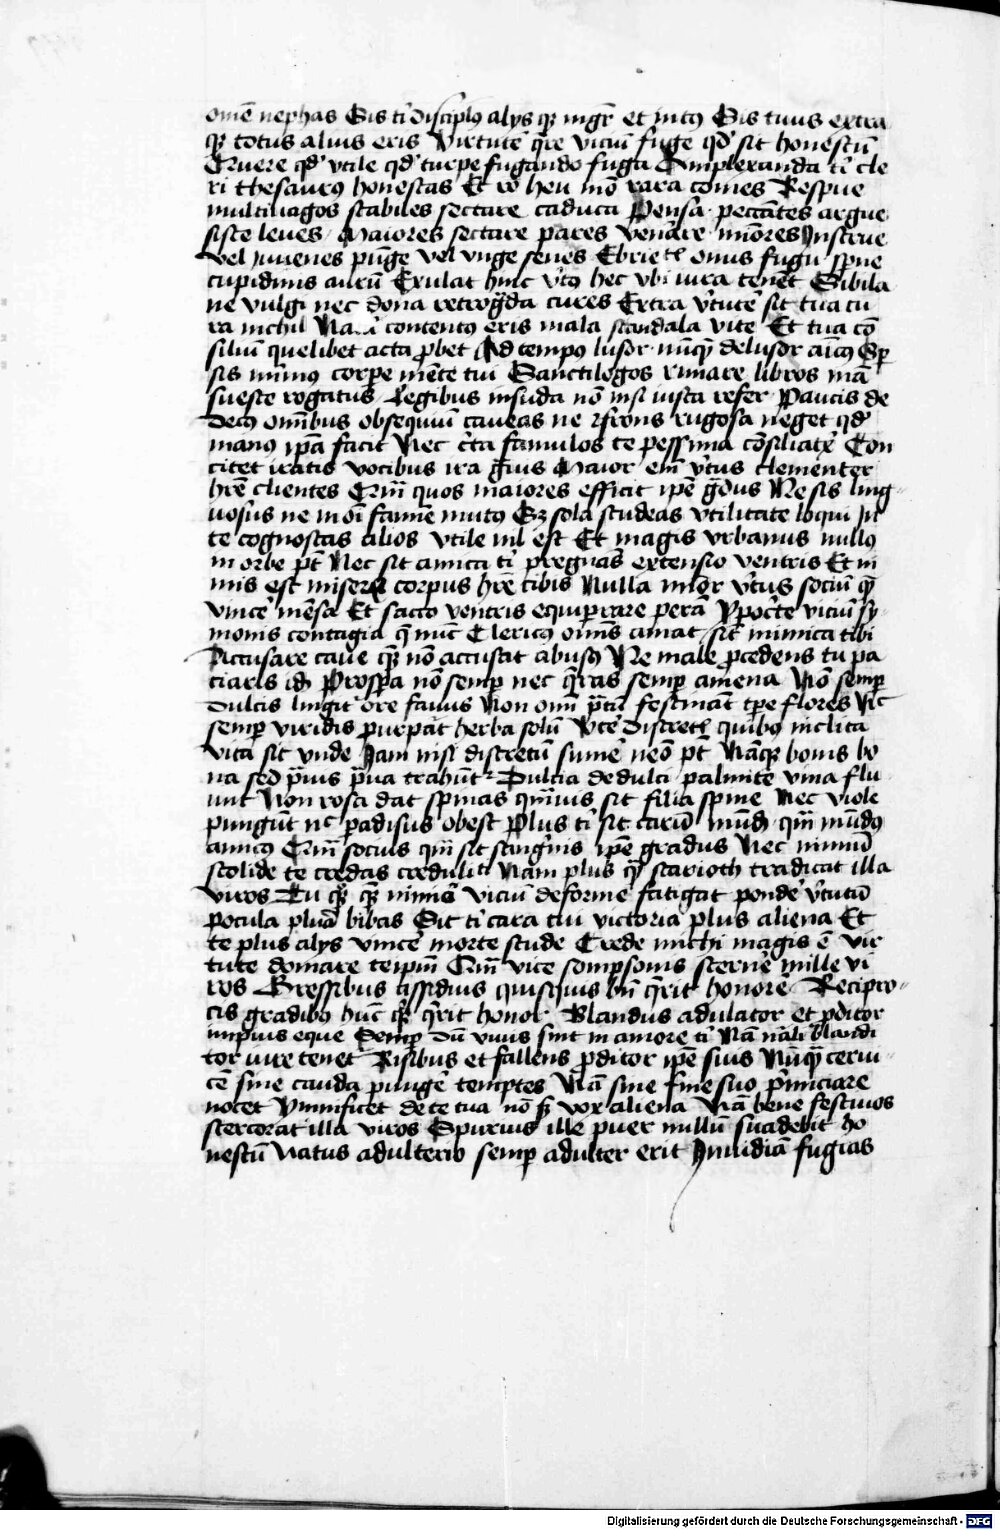 omē nephas Sis ti disciplꝰ alys qꝫ mgr̄ et intꝰ Sis tuus extra
qꝫ totus alius eris Virtutē q̄re viciū fuge qd' sit honestū
Cuere qd' vtile qd' turpe fugando fuga Amplexanda ti cle
ri thesaurꝰ honestas Et ro heu mō rara comes Respue
multiuagos stabiles sectare caduca Pensa peccātes argue
siste leues Maiores sectare pares venerare miōres Instrue
vel iuuenes pūge vel vnge senes Ebrietꝭ onus fuga sperne
cupidinis aurū Exulat hinc v̓tꝰ hec vbi iura tenēt Sibila
ne vulgi nec dona retrogͣda cures Extra v̓tutē sit tua cu
ra nichil contentꝰ eris mala scandala vite Et tua cō
siliū quelibet acta ꝓbet Ad tempꝰ lusor nūqͣ delusor amicꝰ
sis mimꝰ corpe mēte tui Sanctilogos rimare libros mā
sueste rogatus Legibus insuda nō nisi iusta refer Paucis de
decꝰ omībus obsequiū caueas ne frons rugosa neget qd'
manꝰ ip̄a facit Nec c̓ta famulos te pessima cōsiliatꝰ Con
citet iratis vocibus ira gͣuis Maior em̄ v̓tus clementer
hr̄e clientes Qm̄ quos maiores efficit ip̄e gͣdus Ne sis ling
uosus ne in oī famīe mutꝰ Sꝫ sola studeas vtilitate loqui In
te cognoscas alios vtile nil est Et magis vrbanus nullꝰ
in orbe pt̄ Nec sit amica ti pregnās extensio ventris Et ni
mis est miserū corpus hr̄e cibis Nulla mior v̓tus sociū qͣ
vincē mēsa Et sacco ventris equiperare perā Ypocrite viciū sy
monis contagia q̄ nūc Clericꝰ omīs amat sit inimica tibi
Accusare caue qͣ nō accusat abusꝰ Ne male ꝓcedens tu pa
ciaris idē Prosp̄a nō semp nec q̄ras semp amena Nō semp
dulcis lingit ore fauus Non omī p̄ta festināt tpe flores Nec
semp viridis purpāt herba solū Vtē discretꝭ quibus inclita
vita sit vnde Nam nisi discretū sumē neō pt̄ Nāqꝫ bonis bo
na sed p̄uis p̄ua trahūtᷣ Dulcia de dulci palmite vina flu
unt Non rosa dat spinas qͣmuis sit filia spine Nec viole
pungūt nec padisus obest Plus ti sit carū mūdꝰ qͣ mūdꝰ
amicꝰ Qm̄ socius qui sit sanguīs ip̄e gradus Nec nimiū
stolide te credas credulitꝭ Nam plus qͣ scarioth tradicat illa
viros Tu qꝫ qͣ nimiū viciū deforme fatigat pondē v̓tutū
pocula plura bibas Sit ti cara tui victoria plus aliena Et
te plus alys vincē morte stude Crede michi magis ē vir
tute domare teipm̄ Qm̄ vice sompsonis sternē mille vi
ros Gressibus assiduis quisquis bn̄ q̄rit honorē Recipro
cis gradibꝰ hūc qꝫ q̄rit honor Blandus adulator et ꝓditor
impius eque Semp dū viuis sint in amore ti Nā mali blandi
tor vite tenet Risibus et fallens ꝓditor ip̄e suis Nūqͣ cerui
cē sine cauda pungē temptes Nā sine fine suo p̓nciare
nocet Vinificet de te tua nō sꝫ vox aliena Nā bene festiuos
stercorat illa viros Spurius ille puer nullū suadebit ho
nestū Natus adulterio semp adulter erit Inuidiā fugias
Digitalisierung gefördert durch die Deutsche Forschungsgemeinschaft - DFG